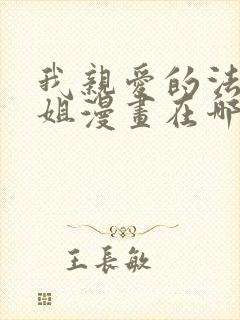 我親愛的法
姐漫畫在哪
王長敏